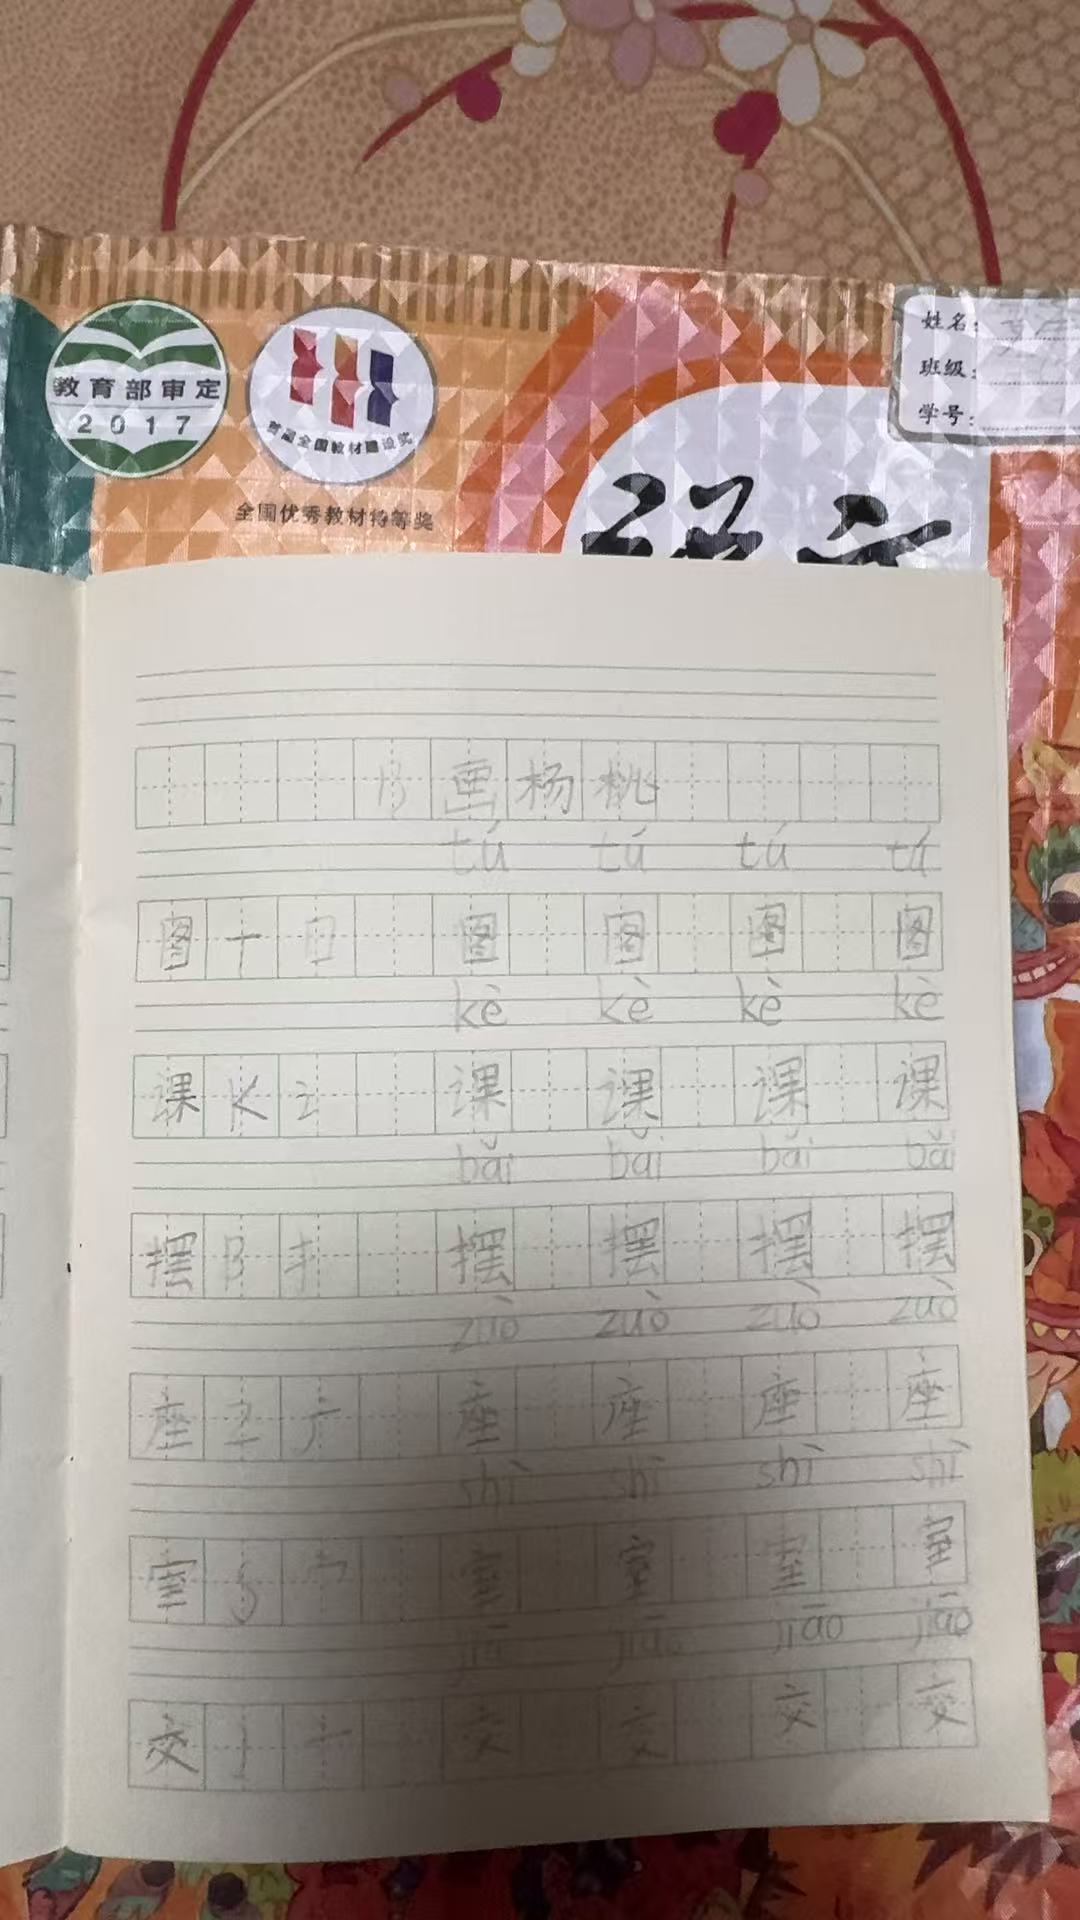 姓名:
班级:
学号:
教育部审定
2017
首届全国教材建设奖
全国优秀教材特等奖
语文
13 画杨桃
tú tú tú tú
图 图 图 图 图
kè kè kè kè
课 K 讠 课 课 课 课
bǎi bǎi bǎi bǎi
摆 B 扌 摆 摆 摆 摆
zuò zuò zuò zuò
座 Z 广 座 座 座 座
shì shì shì shì
室 S 宀 室 室 室 室
jiāo jiāo jiāo
交 J 亠 交 交 交 交